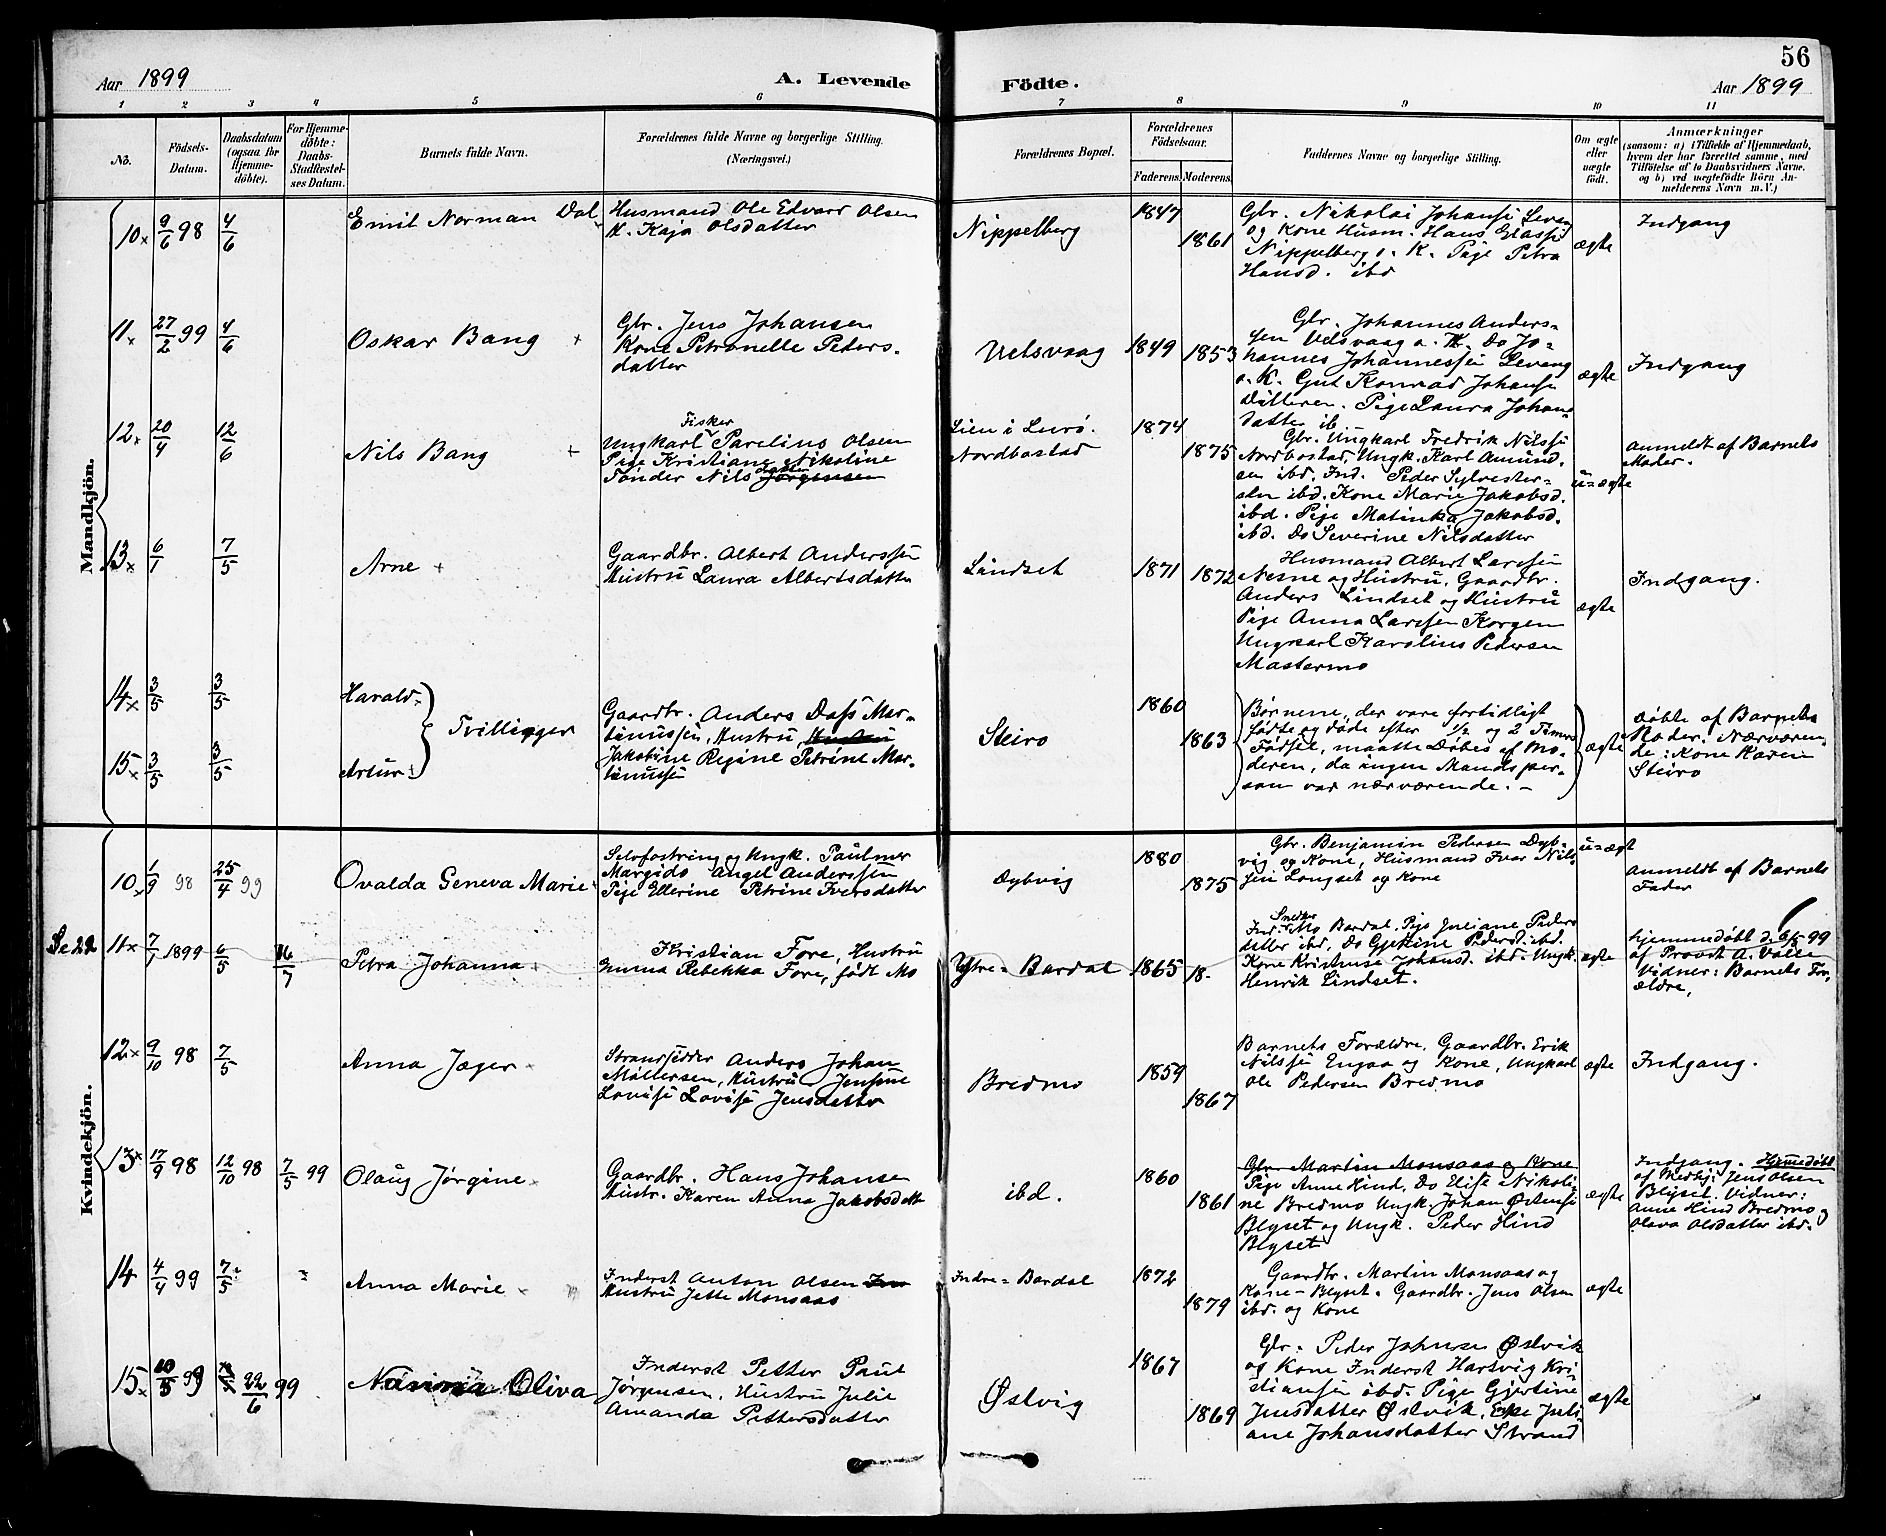 56
Aar 1899
A. Levende
Födte.
Aar 1899
1 2 3 4 5 6 7 8 9 10 11
No.
Födsels-
Datum.
Daabsdatum
(ogsaa for
Hjemme-
döbte).
For Hjemme-
döbte:
Daabs-
Stadfæstel-
ses Datum.
Barnets fulde Navn.
Forældrenes fulde Navne og borgerlige Stilling.
(Næringsvei.)
Forældrenes Bopæl.
Forældrenes
Födselsaar.
Faderens. Moderens.
Faddernes Navne og borgerlige Stilling.
Om ægte
eller
uægte
födt.
Anmærkninger
(saasom: a) i Tilfælde af Hjemmedaab,
hvem der har forrettet samme, med
Tilföielse af to Daabsvidners Navne,
og b) ved uægtefödte Börn An-
melderens Navn m. V.)
Mandkjön.
10 x 9/6 98 4/6
Emil Norman Dal
Husmand Ole Edvard Olsen
H. Kaja Olsdatter
Nippelberg
1847
1861
Gbr. Nikolai Johanss Levang
og Kone Husm. Hans Eliass
Nippelberg o. K. Pige Petra
Hansd. ibd
ægte
Indgang
11 x 27/2 99 4/6
Oskar Bang +
Gbr. Jens Johansen
Kone Petronelle Peders-
datter
Uelsvaag
1849
1853
Gbr. Johannes Anders-
sen Velsvaag o. K. Do Jo-
hannes Johannessen Levang
o. K. Gut Konrad Johanss
Ditteren. Pige Laura Johans
datter ib.
ægte
Indgang
12 x 20/4 12/6
Nils Bang +
Fisker
Ungkarl Parelius Olsen
Pige Kristiane Nikoline
Tönder Nilsdatter Jørgensen
Lien i Lurö.
Nordbostad
1874
1875
Gbr. Ungkarl Fredrik Nilssen
Nordbostad, Ungk. Karl Amund.
sen ibd. Ind. Peder Sylvester-
sen ibd. Kone Marie Jakobsd.
ibd. Pige Matinka Jakobsd.
ibd. Do Severine Nilsdatter
u=ægte
Anmeldt af Barnets
Moder.
13 x 6/1 7/5
Arne +
Gaardbr. Albert Anderssen
Hustru Laura Albertsdatter
Lindset
1871
1872
Husmand Albert Larssen
Nesne og Hustru, Gaardbr.
Anders Lindset og Hustru
Pige Anna Larssen Korgen
Ungkarl Karolius Pedersen
Mastermo
ægte
Indgang.
14 x 3/5 3/5
Harald x
Tvillinger
15 x 3/5 3/5
Artur
Gaardbr. Anders Dass Mar-
tinussen, Hustru, Hustru
Jakobine Regine Petrine Mar-
tinussen
Steiro
1860
1863
Børnene, der vare fortidligt
fødte og døde efter 1/2 og 2 Timers
Fødsel, maatte døbes af Mo-
deren, da ingen Mandsper-
son var nærværende. -
ægte
døbte af Barnets
Moder. Nærværen-
de: Kone Karen
Steiro
Kvindekjön.
10 x 1/9 98 25/4 99
Ovalda Geneva Marie
Selvfostring og Ungk. Paulmer
Margido Angel Anderssen
Pige Ellerine Petrine Iversdatter
Dybvig
1880
1875
Gbr. Benjamin Pedersen Dyb-
vig og Kone, Husmand Ivar Nils
sen Langset og Kone
u=ægt
Anmeldt af Barnets
Fader
Se 22
11 x 7/1 1899 6/5 16/7
Petra Johanna
Kristian Fore, Hustru
Emma Rebekka Fore, født Mo
Ytre=Bardal
1865
18-
Snedker
Ind. Mo Bardal, Pige Juliane Peders
datter ibd, Do Gjertine Pedersd. ibd.
Kone Kristense Johansd. ibd. Ungk.
Henrik Lindset.
ægte
Hjemmedøbt d. 6/5 99
af Provst A. Valle
Vidner: Barnets For-
ældre,
12 x 9/10 98 7/5
Anna Jæger
Strandsidder Anders Johan
Möllersen, Hustru Jensine
Lovise Lovise Jensdatter
Bredmo
1859
1867
Barnets Forældre, Gaardbr. Erik
Nilssen Engaa og Kone, Ungkarl
Ole Pedersen Bredmo
ægte
Indgang.
13 x 17/9 98 12/10 98 7/5 99
Olaug Jørgine
Gaardbr. Hans Johansen
Hustr. Karen Anna Jakobsdatt
ibd.
1860
1861
Gbr. Martin Monsaas og Kone
Pige Anne Hind, Do Elise Nikoli-
ne Bredmo Ungk. Johan Østensen
Blyset og Ungk. Peder Hind
Blyset
ægte
Indgang. Hjemmedøbt
af Medhj. Jens Olsen
Blyset. Vidner:
Anne Hind Bredmo og
Olava Olsdatter ibd.
14 4/4 99 7/5
Anna Marie
Inderst Anton Olsen
Hustru Jette Monsaas
Indre=Bardal
1872
1879
Gaardbr. Martin Monsaas og
Kone - Blyset. Gaardbr. Jens Olsen
ibd. og Kone
ægte
15 x 99 22/6 99
Nanna Oliva
Inderst Petter Paul
Jørgensen, Hustru Julie
Amanda Pettersdatter
Østvig
1867
1869
Gbr. Peder Johnsen Østvik
og Kone Inderst Hartvig Kri-
stiansen ibd. Pige Gjertine
Jensdatter Østvik, Enke Juli-
ane Johansdatter Strand
ægte